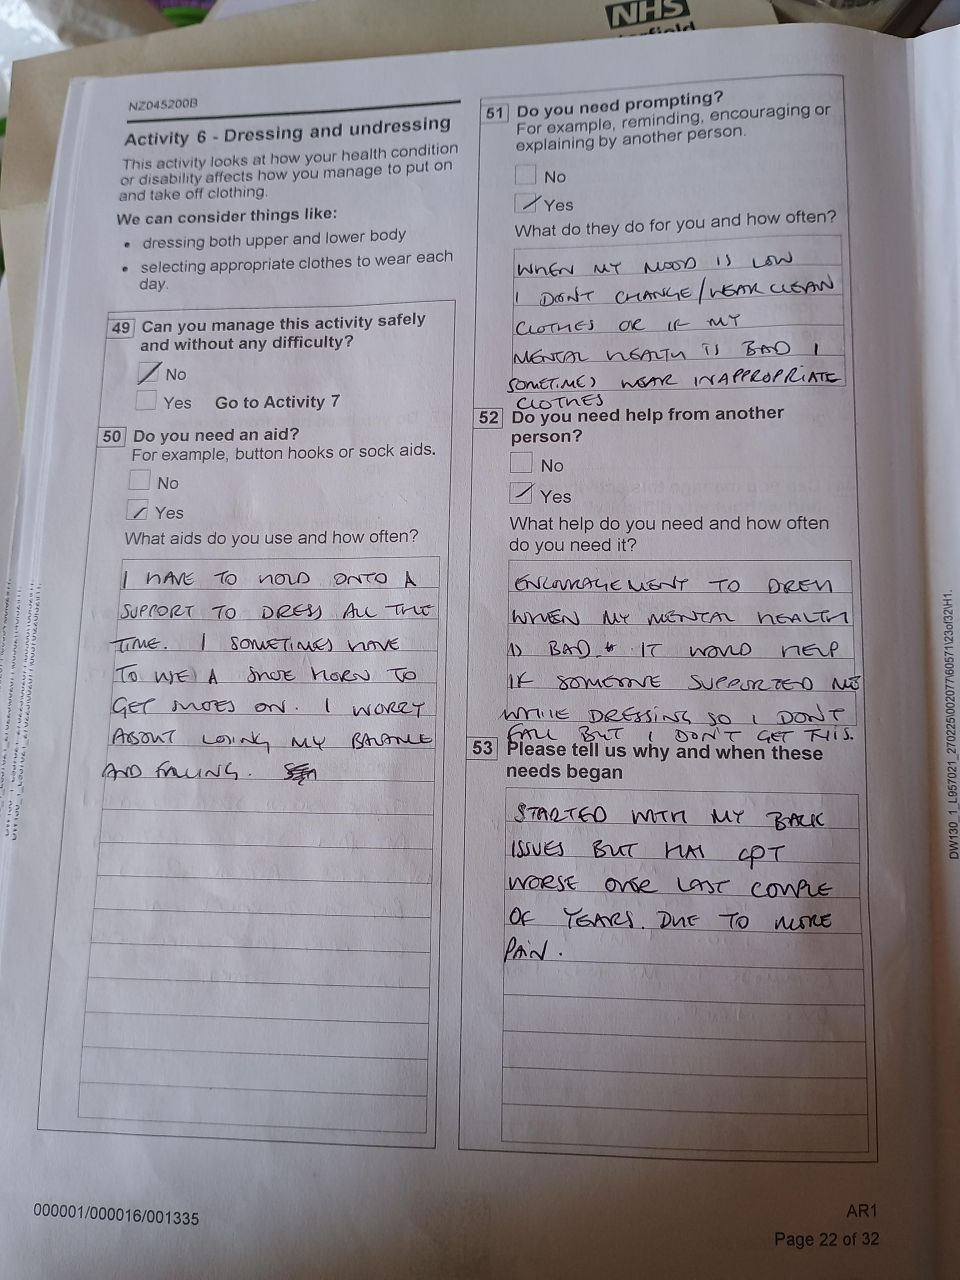 NHS
NZ045200B
Activity 6 - Dressing and undressing
This activity looks at how your health condition
or disability affects how you manage to put on
and take off clothing.
We can consider things like:
• dressing both upper and lower body
• selecting appropriate clothes to wear each
day.
49 Can you manage this activity safely
and without any difficulty?
No
Yes Go to Activity 7
50 Do you need an aid?
For example, button hooks or sock aids.
No
Yes
What aids do you use and how often?
I HAVE TO HOLD ONTO A
SUPPORT TO DRESS ALL THE
TIME. I SOMETIMES HAVE
TO USE A SHOE HORN TO
GET SHOES ON. I WORRY
ABOUT LOSING MY BALANCE
AND FALLING.
51 Do you need prompting?
For example, reminding, encouraging or
explaining by another person.
No
Yes
What do they do for you and how often?
WHEN MY MOOD IS LOW
I DONT CHANGE/WEAR CLEAN
CLOTHES OR IF MY
MENTAL HEALTH IS BAD I
SOMETIMES WEAR INAPPROPRIATE
CLOTHES
52 Do you need help from another
person?
No
Yes
What help do you need and how often
do you need it?
ENCOURAGEMENT TO DRESS
WHEN MY MENTAL HEALTH
IS BAD. IT WOULD HELP
IF SOMEONE SUPPORTED ME
WHILE DRESSING SO I DON'T
FALL BUT I DON'T GET THIS.
53 Please tell us why and when these
needs began
STARTED WITH MY BACK
ISSUES BUT HAS GOT
WORSE OVER LAST COUPLE
OF YEARS. DUE TO MORE
PAIN.
000001/000016/001335
AR1
Page 22 of 32
DW130_1_L957021_270225\002077\60571\23of32\H1.